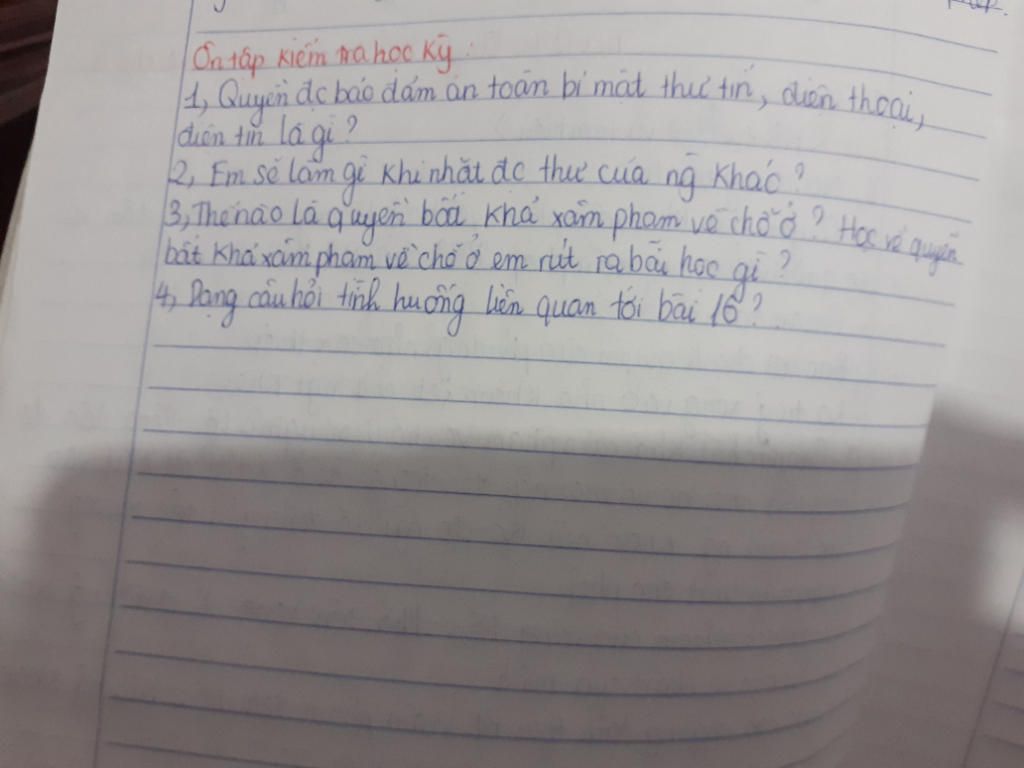 Ôn tập kiểm tra học kỳ:
1, Quyền đc bảo đảm an toàn bí mật thư tín, điện thoại,
điện tín là gì?
2, Em sẽ làm gì khi nhặt đc thư của ng khác?
3, Thế nào là quyền bất khả xâm phạm về chỗ ở? Học về quyền
bất khả xâm phạm về chỗ ở em rút ra bài học gì?
4, Dạng câu hỏi tình huống liên quan tới bài 16?